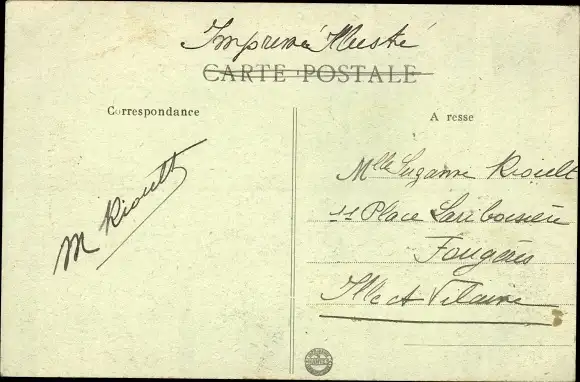 Imprimé Illustré
CARTE POSTALE
Correspondance
A resse
M Rioult
Mlle Suzanne Rioult
11 Place Lariboisière
Fougères
Ille et Vilaine